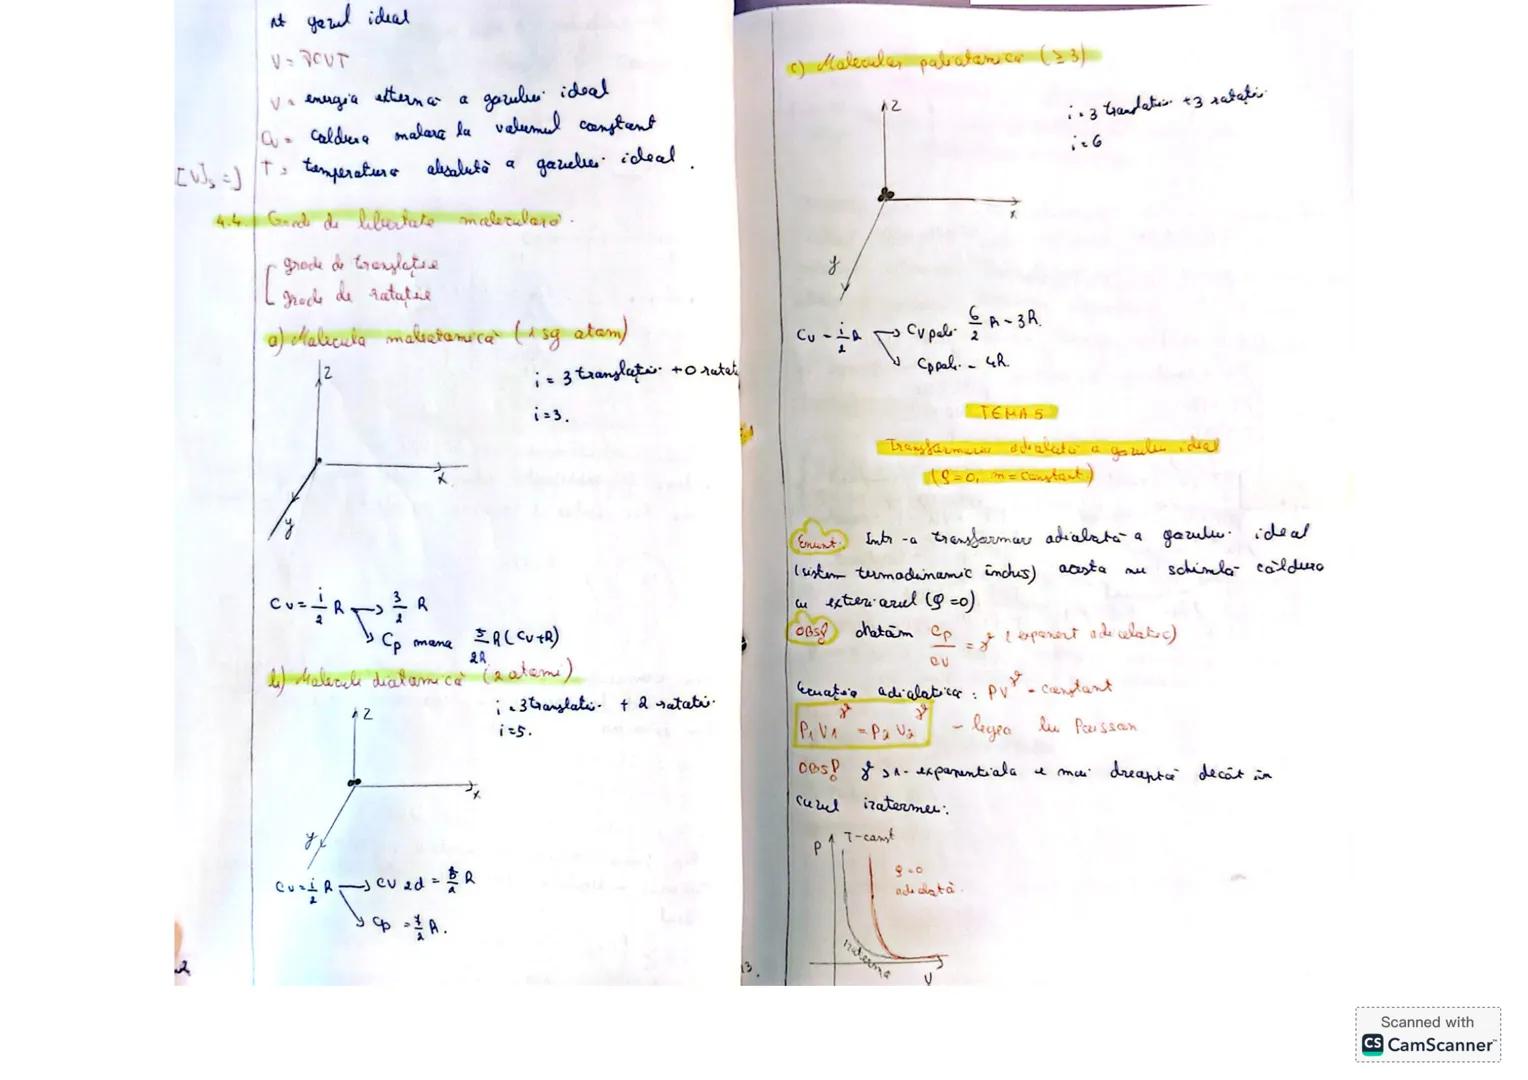 pt gazul ideal
U = νCvT
U = energia internă a gazului ideal
Cv = caldura molara la volumul constant
[U]s =J T = temperatura absolută a gazului ideal.
4.4. Grade de libertate moleculară.
grade de translație
grade de rotație
a) Molecula monoatomică (1 sg atom)
z
i = 3 translații + 0 rotații
i=3.
x
y
Cv = i/2 R → 3/2 R
Cp mono 5/2 R (Cv+R)
b) Molecule diatomică (2 atomi)
i = 3 translații + 2 rotații.
i=5.
z
x
y
Cv = i/2 R → Cv 2d = 5/2 R
Cp = 7/2 R.
2
c) Molecule poliatomică (≥3)
z
i = 3 translații + 3 rotații
i=6
x
y
Cv = i/2 R → Cv poli. 6/2 R - 3R.
Cp poli. - 4R.
TEMA 5
Transformarea adiabată a gazului ideal
(Q=0, m=constant)
Enunt. Intr-a transformare adiabată a gazului ideal
(sistem termodinamic inchis) acesta nu schimbă căldura
cu exteriorul (Q=0)
OBS! Notăm Cp/Cv = γ (exponent adiabatic)
Ecuația adiabatică: PV^γ - constant
P1V1^γ = P2V2^γ - legea lui Poisson
OBS! γ>1- exponentiala e mai dreaptă decât în
cazul izotermei:
P
T-const
Q=0
adiabată.
izoterma
V
13.
Scanned with
CS CamScanner